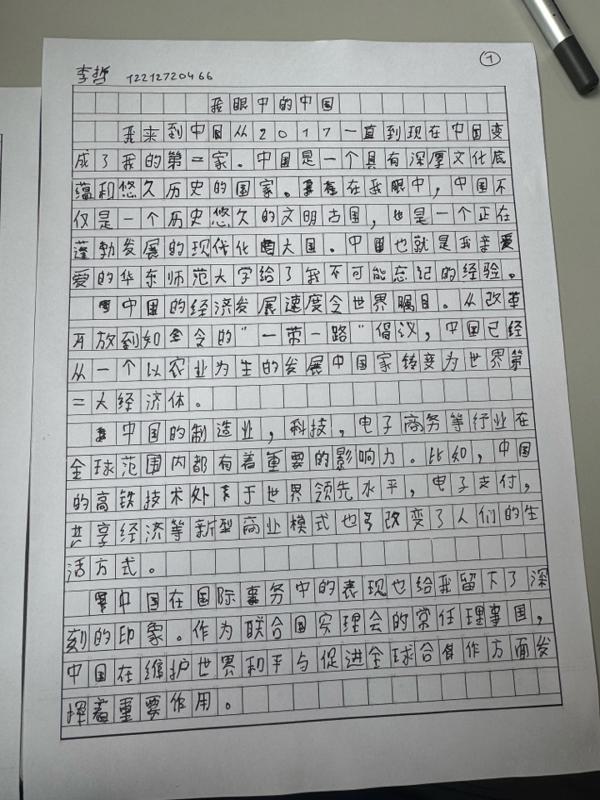 ①
李哲 12212720466
我眼中的中国
我来到中国从2017一直到现在中国变
成了我的第二家。中国是一个具有深厚文化底
蕴和悠久历史的国家。在我眼中，中国不
仅是一个历史悠久的文明古国，也是一个正在
蓬勃发展的现代化大国。中国也就是我亲爱
爱的华东师范大学给了我不可能忘记的经验。
中国的经济发展速度令世界瞩目。从改革
开放到如今的“一带一路”倡议，中国已经
从一个以农业为生的发展中国家转变为世界第
二大经济体。
中国的制造业，科技，电子商务等行业在
全球范围内都有着重要的影响力。比如，中国
的高铁技术处于世界领先水平，电子支付，
共享经济等新型商业模式也改变了人们的生
活方式。
中国在国际事务中的表现也给我留下了深
刻的印象。作为联合国安理会的常任理事国，
中国在维护世界和平与促进全球合作方面发
挥着重要作用。